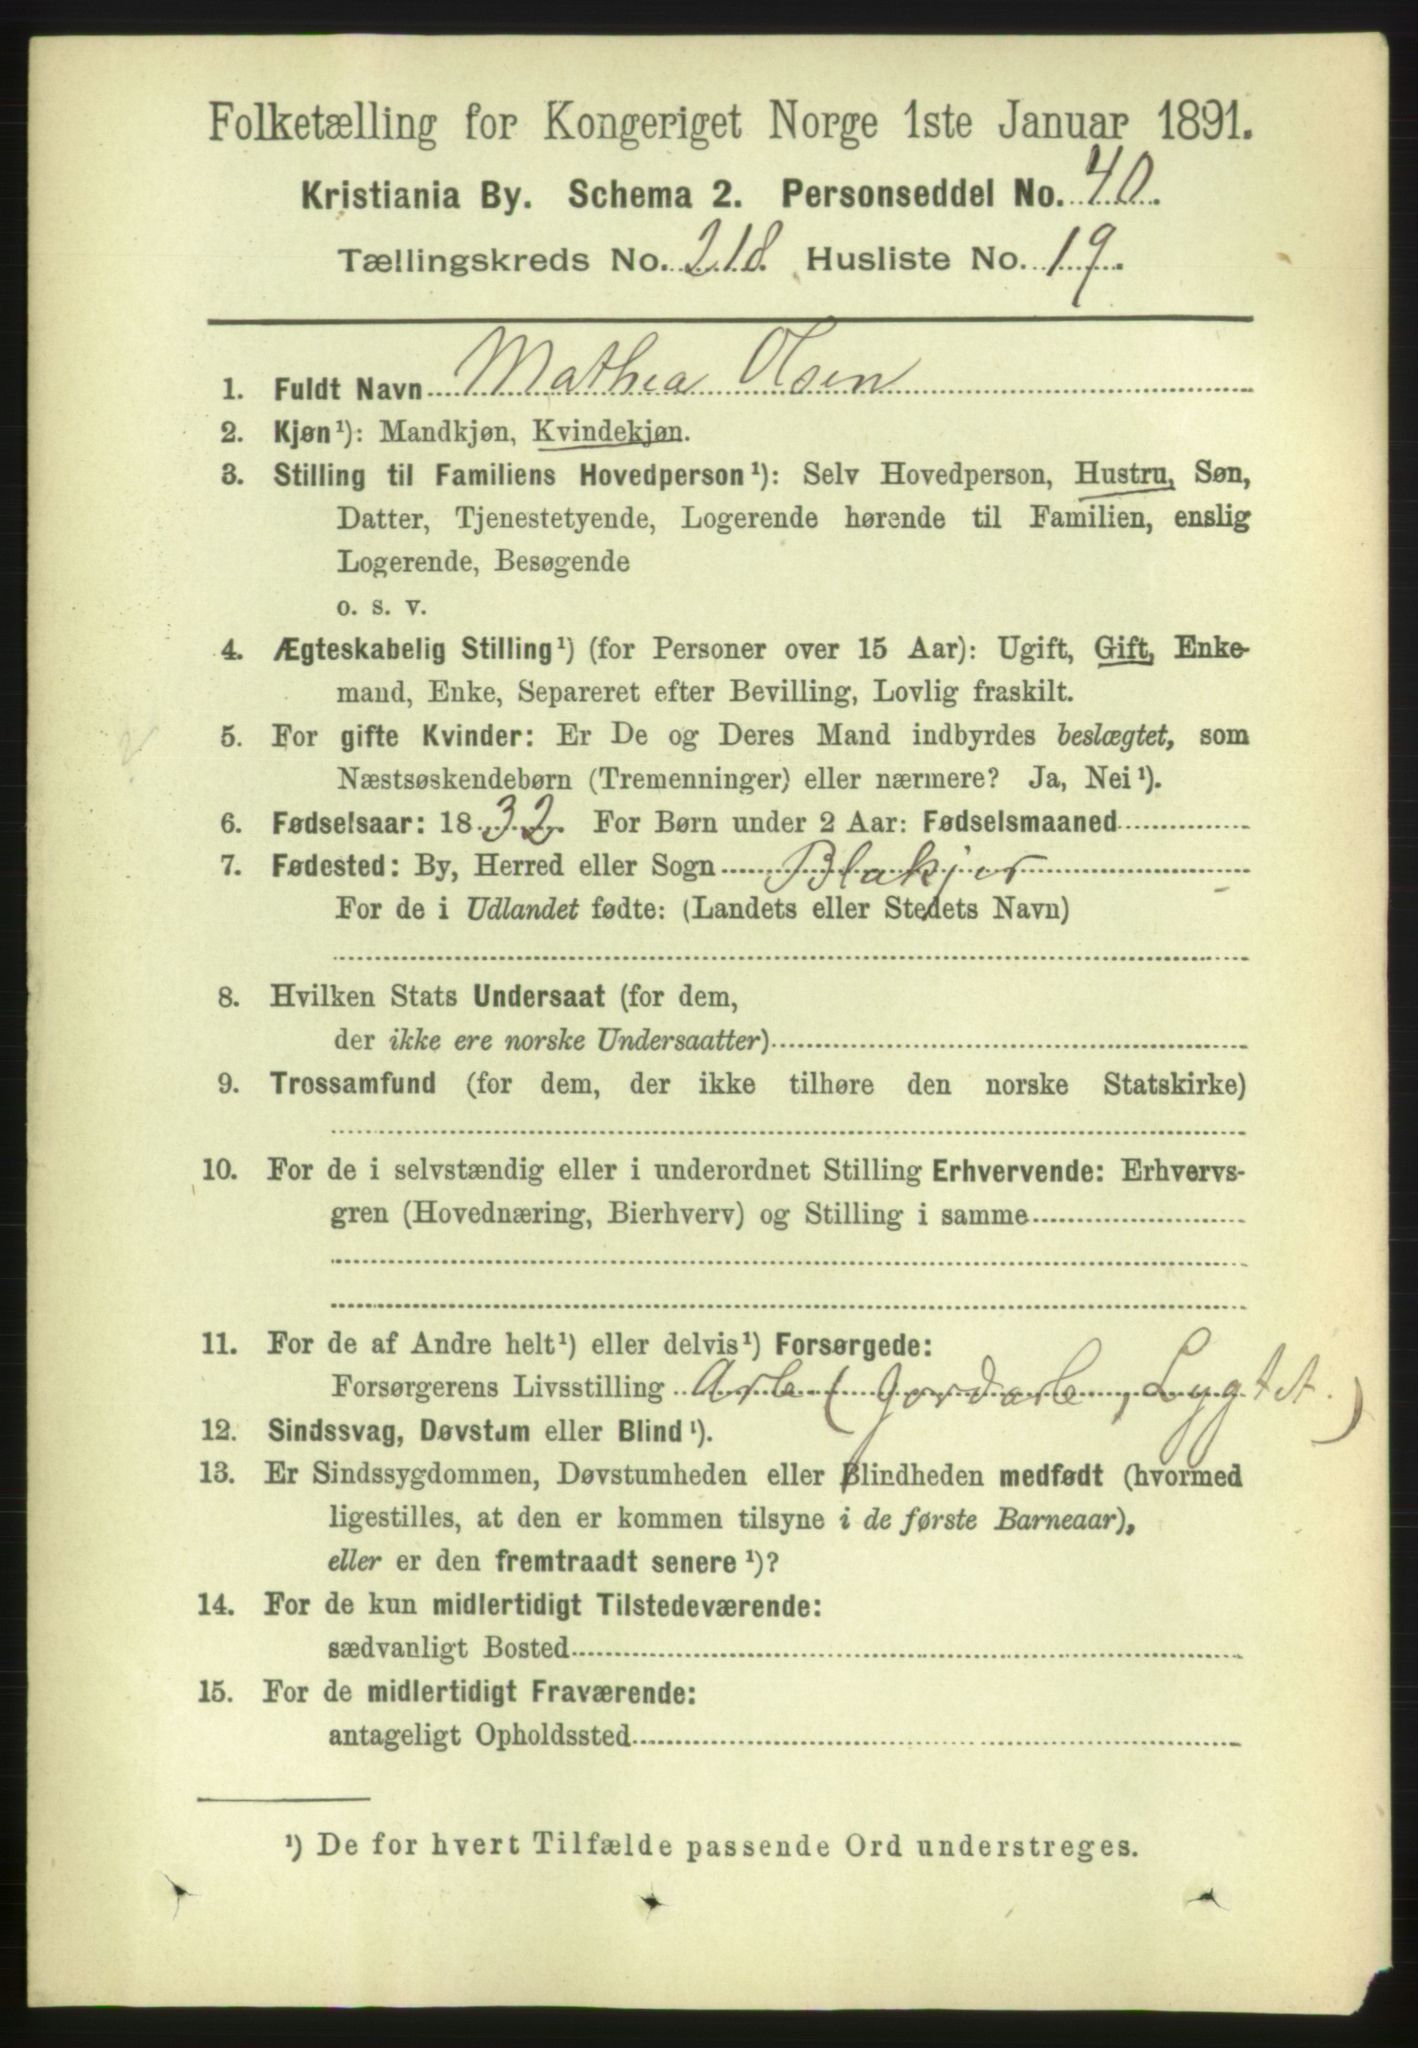 Folketælling for Kongeriget Norge 1ste Januar 1891.
Kristiania By. Schema 2. Personseddel No. 40.
Tællingskreds No. 218. Husliste No. 19.
1. Fuldt Navn Mathea Olsen
2. Kjøn¹): Mandkjøn, Kvindekjøn.
3. Stilling til Familiens Hovedperson¹): Selv Hovedperson, Hustru, Søn,
Datter, Tjenestetyende, Logerende hørende til Familien, enslig
Logerende, Besøgende
o. s. v.
4. Ægteskabelig Stilling¹) (for Personer over 15 Aar): Ugift, Gift, Enke-
mand, Enke, Separeret efter Bevilling, Lovlig fraskilt.
5. For gifte Kvinder: Er De og Deres Mand indbyrdes beslægtet, som
Næstsøskendebørn (Tremenninger) eller nærmere? Ja, Nei¹).
6. Fødselsaar: 1832. For Børn under 2 Aar: Fødselsmaaned
7. Fødested: By, Herred eller Sogn Blakjer
For de i Udlandet fødte: (Landets eller Stedets Navn)
8. Hvilken Stats Undersaat (for dem,
der ikke ere norske Undersaatter)
9. Trossamfund (for dem, der ikke tilhøre den norske Statskirke)
10. For de i selvstændig eller i underordnet Stilling Erhvervende: Erhvervs-
gren (Hovednæring, Bierhverv) og Stilling i samme
11. For de af Andre helt¹) eller delvis¹) Forsørgede:
Forsørgerens Livsstilling Arb (Jordarb, Lygt
12. Sindssvag, Døvstum eller Blind¹).
13. Er Sindssygdommen, Døvstumheden eller Blindheden medfødt (hvormed
ligestilles, at den er kommen tilsyne i de første Barneaar),
eller er den fremtraadt senere¹)?
14. For de kun midlertidigt Tilstedeværende:
sædvanligt Bosted
15. For de midlertidigt Fraværende:
antageligt Opholdssted
¹) De for hvert Tilfælde passende Ord understreges.